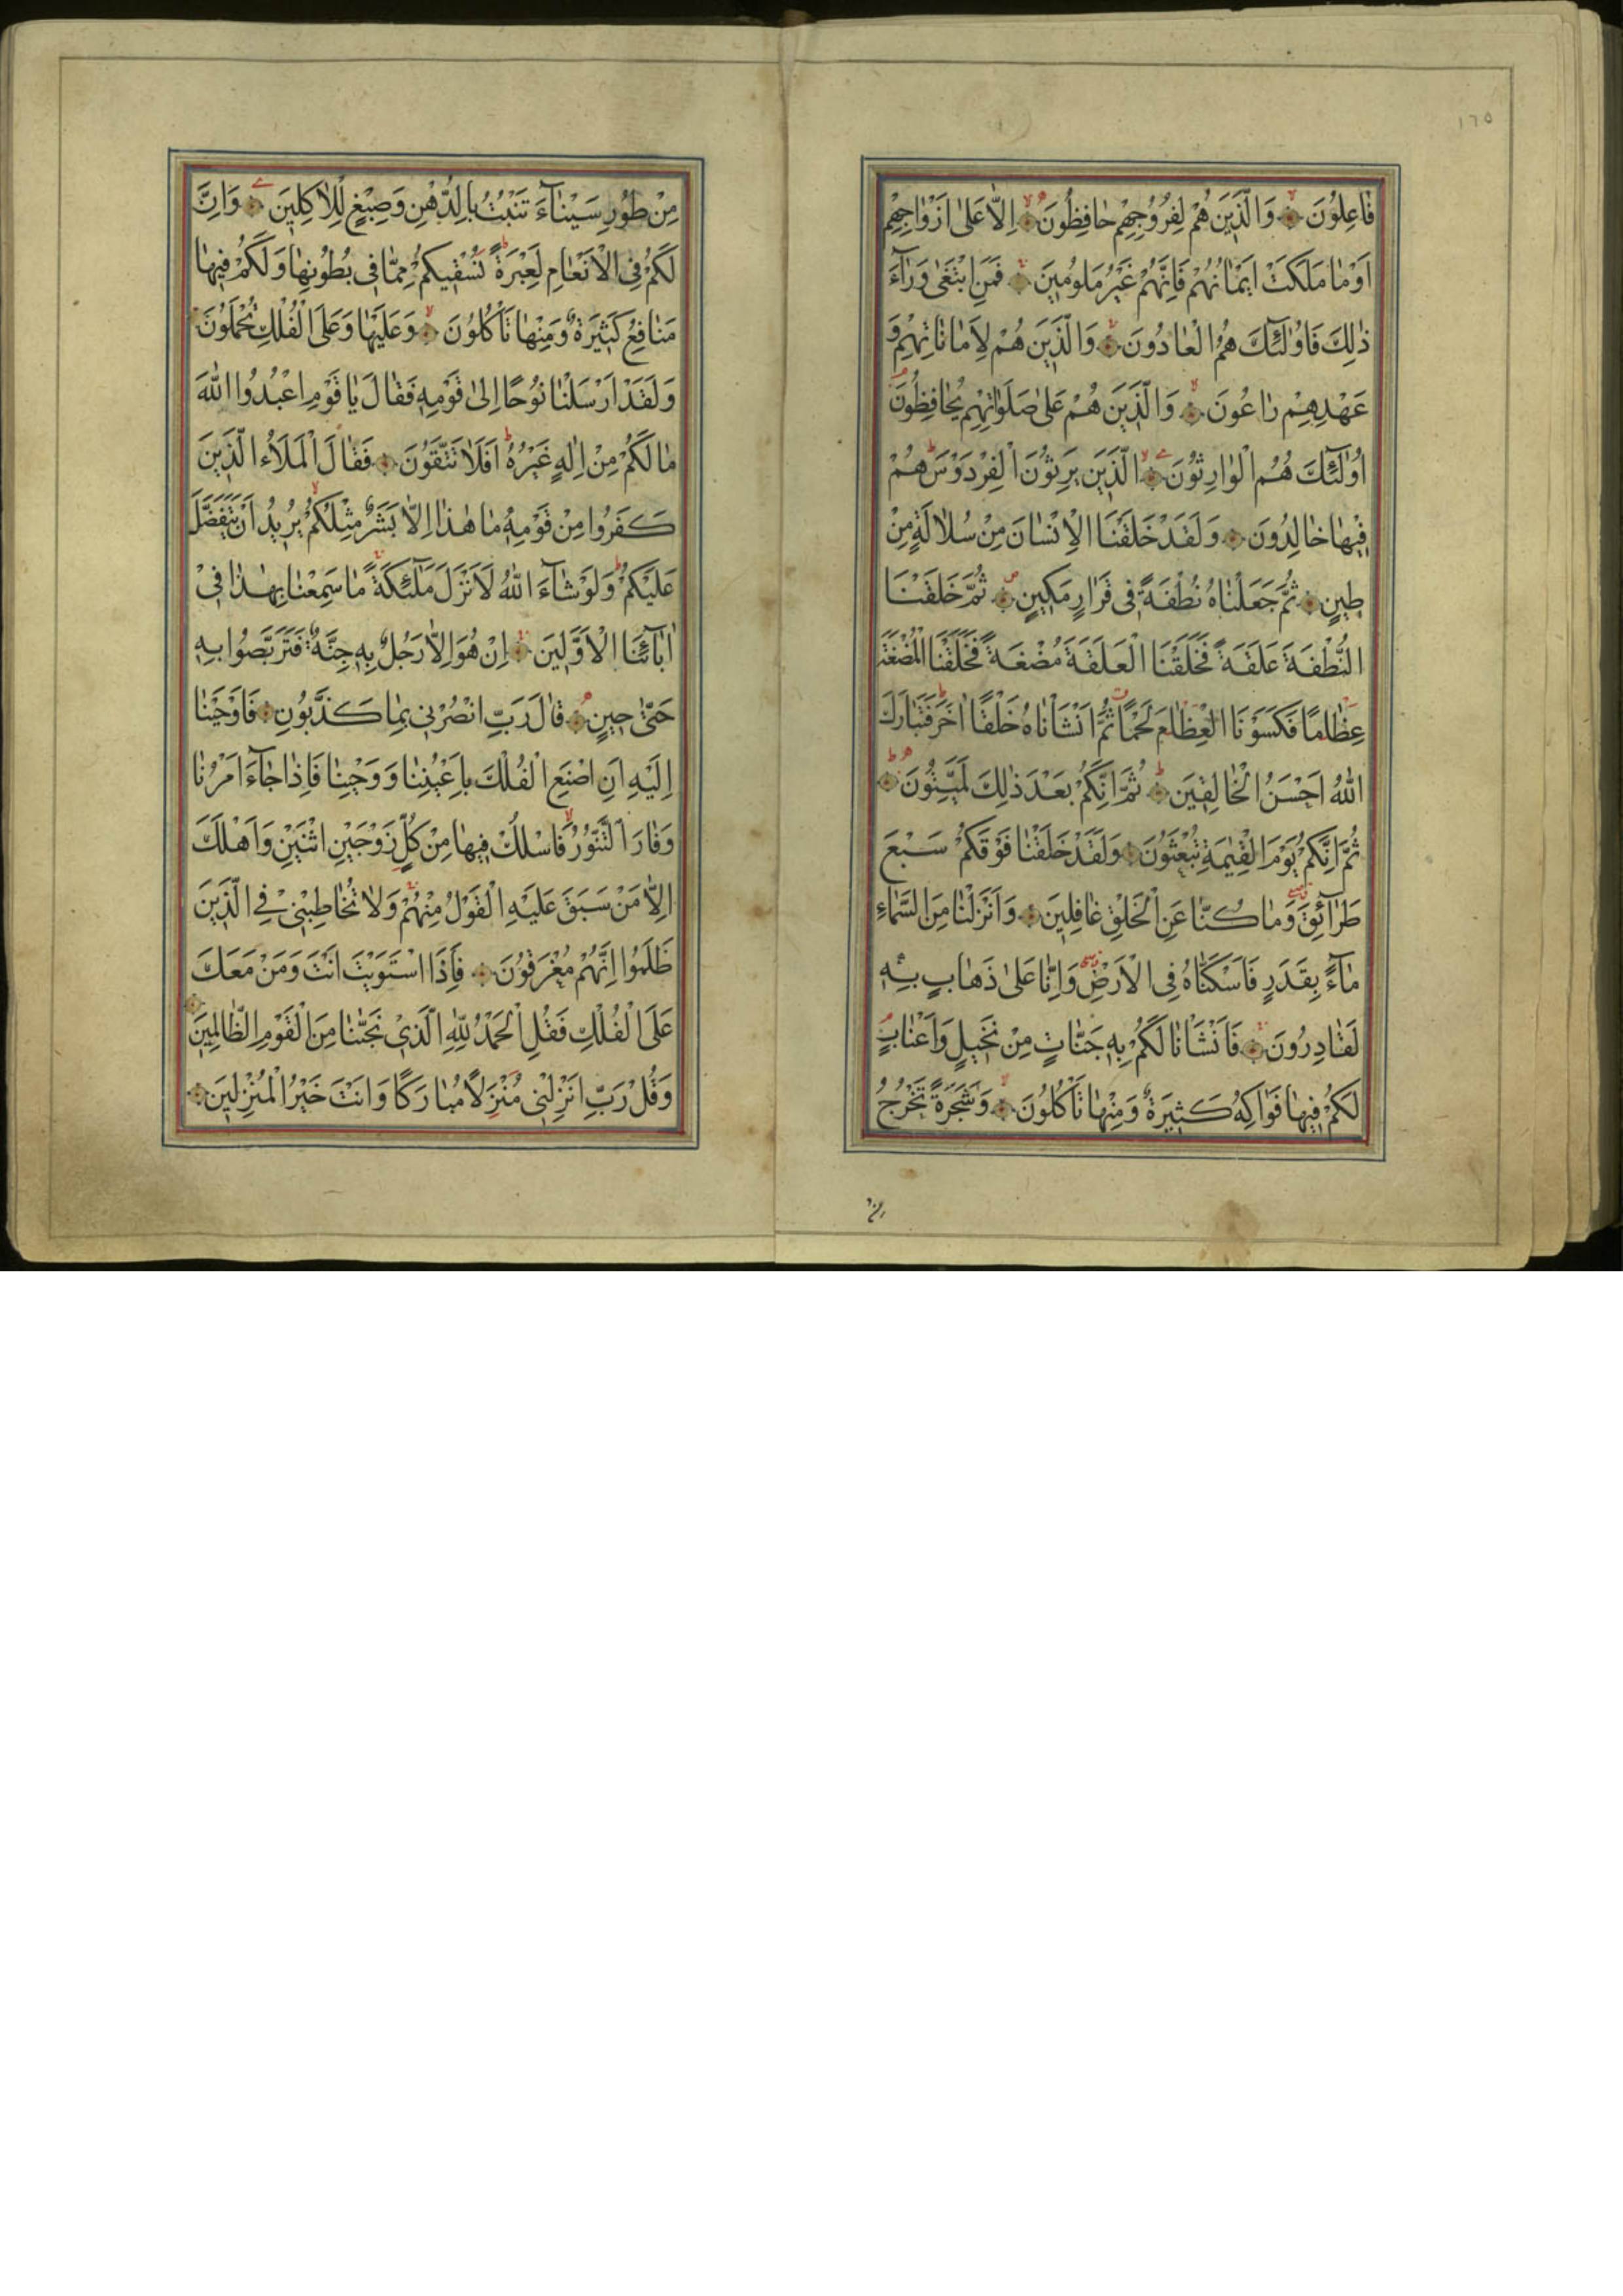 ١٦٥
فَاعِلُونَ وَالَّذِينَ هُمْ لِفُرُوجِهِمْ حَافِظُونَ اِلَّا عَلٰى اَزْوَاجِهِمْ
اَوْ مَا مَلَكَتْ اَيْمَانُهُمْ فَاِنَّهُمْ غَيْرُ مَلُومِينَ فَمَنِ ابْتَغٰى وَرَآءَ
ذٰلِكَ فَاُولٰٓئِكَ هُمُ الْعَادُونَ وَالَّذِينَ هُمْ لِاَمَانَاتِهِمْ وَ
عَهْدِهِمْ رَاعُونَ وَالَّذِينَ هُمْ عَلٰى صَلَوَاتِهِمْ يُحَافِظُونَ
اُولٰٓئِكَ هُمُ الْوَارِثُونَ الَّذِينَ يَرِثُونَ الْفِرْدَوْسَ هُمْ
فِيهَا خَالِدُونَ وَلَقَدْ خَلَقْنَا الْاِنْسَانَ مِنْ سُلَالَةٍ مِنْ
طِينٍ ثُمَّ جَعَلْنَاهُ نُطْفَةً فِى قَرَارٍ مَكِينٍ ثُمَّ خَلَقْنَا
النُّطْفَةَ عَلَقَةً فَخَلَقْنَا الْعَلَقَةَ مُضْغَةً فَخَلَقْنَا الْمُضْغَةَ
عِظَامًا فَكَسَوْنَا الْعِظَامَ لَحْمًا ثُمَّ اَنْشَاْنَاهُ خَلْقًا اٰخَرَ فَتَبَارَكَ
اللّٰهُ اَحْسَنُ الْخَالِقِينَ ثُمَّ اِنَّكُمْ بَعْدَ ذٰلِكَ لَمَيِّتُونَ
ثُمَّ اِنَّكُمْ يَوْمَ الْقِيٰمَةِ تُبْعَثُونَ وَلَقَدْ خَلَقْنَا فَوْقَكُمْ سَبْعَ
طَرَآئِقَ وَمَا كُنَّا عَنِ الْخَلْقِ غَافِلِينَ وَاَنْزَلْنَا مِنَ السَّمَاءِ
مَآءً بِقَدَرٍ فَاَسْكَنَّاهُ فِى الْاَرْضِ وَاِنَّا عَلٰى ذَهَابٍ بِهِ
لَقَادِرُونَ فَاَنْشَاْنَا لَكُمْ بِهِ جَنَّاتٍ مِنْ نَخِيلٍ وَاَعْنَابٍ
لَكُمْ فِيهَا فَوَاكِهُ كَثِيرَةٌ وَمِنْهَا تَاْكُلُونَ وَشَجَرَةً تَخْرُجُ
مِنْ
مِنْ طُورِ سَيْنَآءَ تَنْبُتُ بِالدُّهْنِ وَصِبْغٍ لِلْاٰكِلِينَ وَاِنَّ
لَكُمْ فِى الْاَنْعَامِ لَعِبْرَةً نُسْقِيكُمْ مِمَّا فِى بُطُونِهَا وَلَكُمْ فِيهَا
مَنَافِعُ كَثِيرَةٌ وَمِنْهَا تَاْكُلُونَ وَعَلَيْهَا وَعَلَى الْفُلْكِ تُحْمَلُونَ
وَلَقَدْ اَرْسَلْنَا نُوحًا اِلٰى قَوْمِهِ فَقَالَ يَا قَوْمِ اعْبُدُوا اللّٰهَ
مَا لَكُمْ مِنْ اِلٰهٍ غَيْرُهُ اَفَلَا تَتَّقُونَ فَقَالَ الْمَلَأُ الَّذِينَ
كَفَرُوا مِنْ قَوْمِهِ مَا هٰذَا اِلَّا بَشَرٌ مِثْلُكُمْ يُرِيدُ اَنْ يَتَفَضَّلَ
عَلَيْكُمْ وَلَوْ شَآءَ اللّٰهُ لَاَنْزَلَ مَلٰٓئِكَةً مَا سَمِعْنَا بِهٰذَا فِى
اٰبَآئِنَا الْاَوَّلِينَ اِنْ هُوَ اِلَّا رَجُلٌ بِهِ جِنَّةٌ فَتَرَبَّصُوا بِهِ
حَتّٰى حِينٍ قَالَ رَبِّ انْصُرْنِى بِمَا كَذَّبُونِ فَاَوْحَيْنَا
اِلَيْهِ اَنِ اصْنَعِ الْفُلْكَ بِاَعْيُنِنَا وَوَحْيِنَا فَاِذَا جَآءَ اَمْرُنَا
وَفَارَ التَّنُّورُ فَاسْلُكْ فِيهَا مِنْ كُلٍّ زَوْجَيْنِ اثْنَيْنِ وَاَهْلَكَ
اِلَّا مَنْ سَبَقَ عَلَيْهِ الْقَوْلُ مِنْهُمْ وَلَا تُخَاطِبْنِى فِى الَّذِينَ
ظَلَمُوا اِنَّهُمْ مُغْرَقُونَ فَاِذَا اسْتَوَيْتَ اَنْتَ وَمَنْ مَعَكَ
عَلَى الْفُلْكِ فَقُلِ الْحَمْدُ لِلّٰهِ الَّذِى نَجّٰنَا مِنَ الْقَوْمِ الظَّالِمِينَ
وَقُلْ رَبِّ اَنْزِلْنِى مُنْزَلًا مُبَارَكًا وَاَنْتَ خَيْرُ الْمُنْزِلِينَ